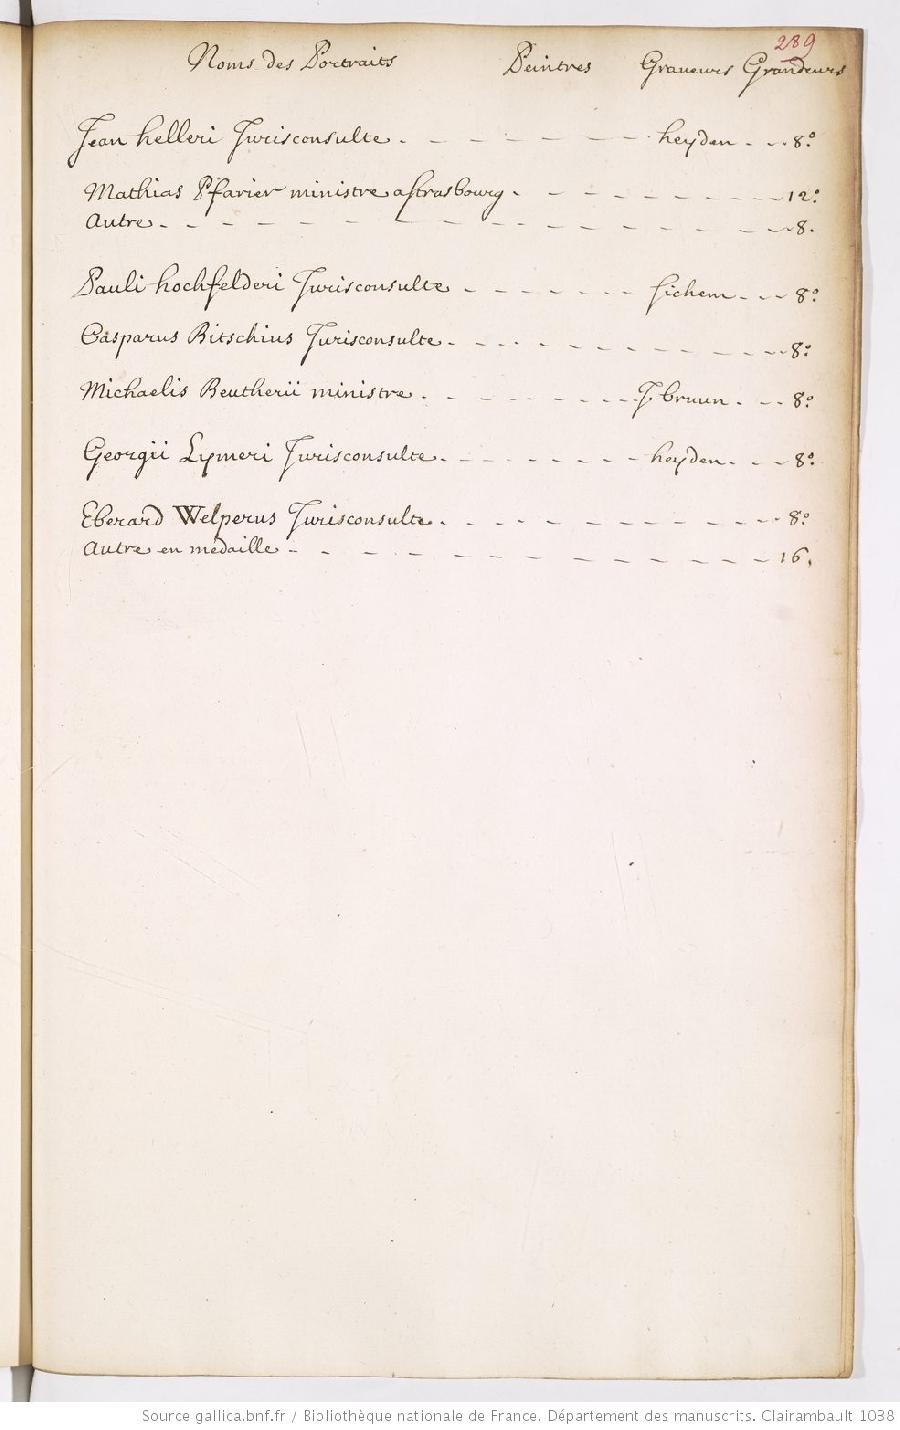 289
Noms des Portraits Peintres Graveurs Grandeurs
Jean helleri Jurisconsulte heyden 8.°
Mathias Pfarier ministre a strasbourg 12.°
Autre 8.
Pauli hochfelderi Jurisconsulte sichem 8.°
Casparus Bitschius Jurisconsulte 8.°
Michaelis Beutherii ministre J. bruun 8.°
Georgii Lymeri Jurisconsulte heyden 8.°
Eberard Welperus Jurisconsulte 8.°
Autre en medaille 16.
Source gallica.bnf.fr / Bibliothèque nationale de France. Département des manuscrits. Clairambault 1038